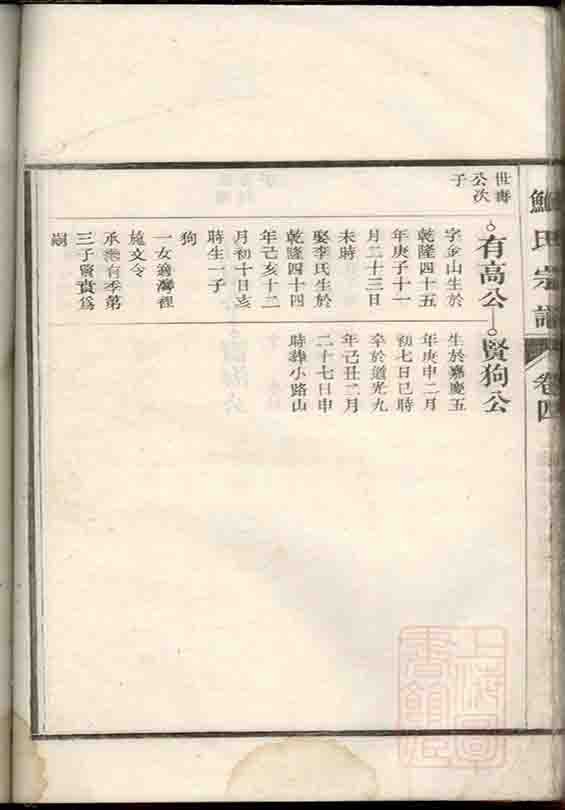 鮑氏宗譜
卷四
世壽
公次
子
有高公
字金山生於
乾隆四十五
年庚子十一
月二十三日
未時
娶李氏生於
乾隆四十四
年己亥十二
月初十日亥
時生一子
狗
一女適灣裡
施文令
承繼有季第
三子賢貴爲
嗣
賢狗公
生於嘉慶五
年庚申二月
初七日巳時
卒於道光九
年己丑二月
二十七日申
時葬小路山
上海圖
書館藏